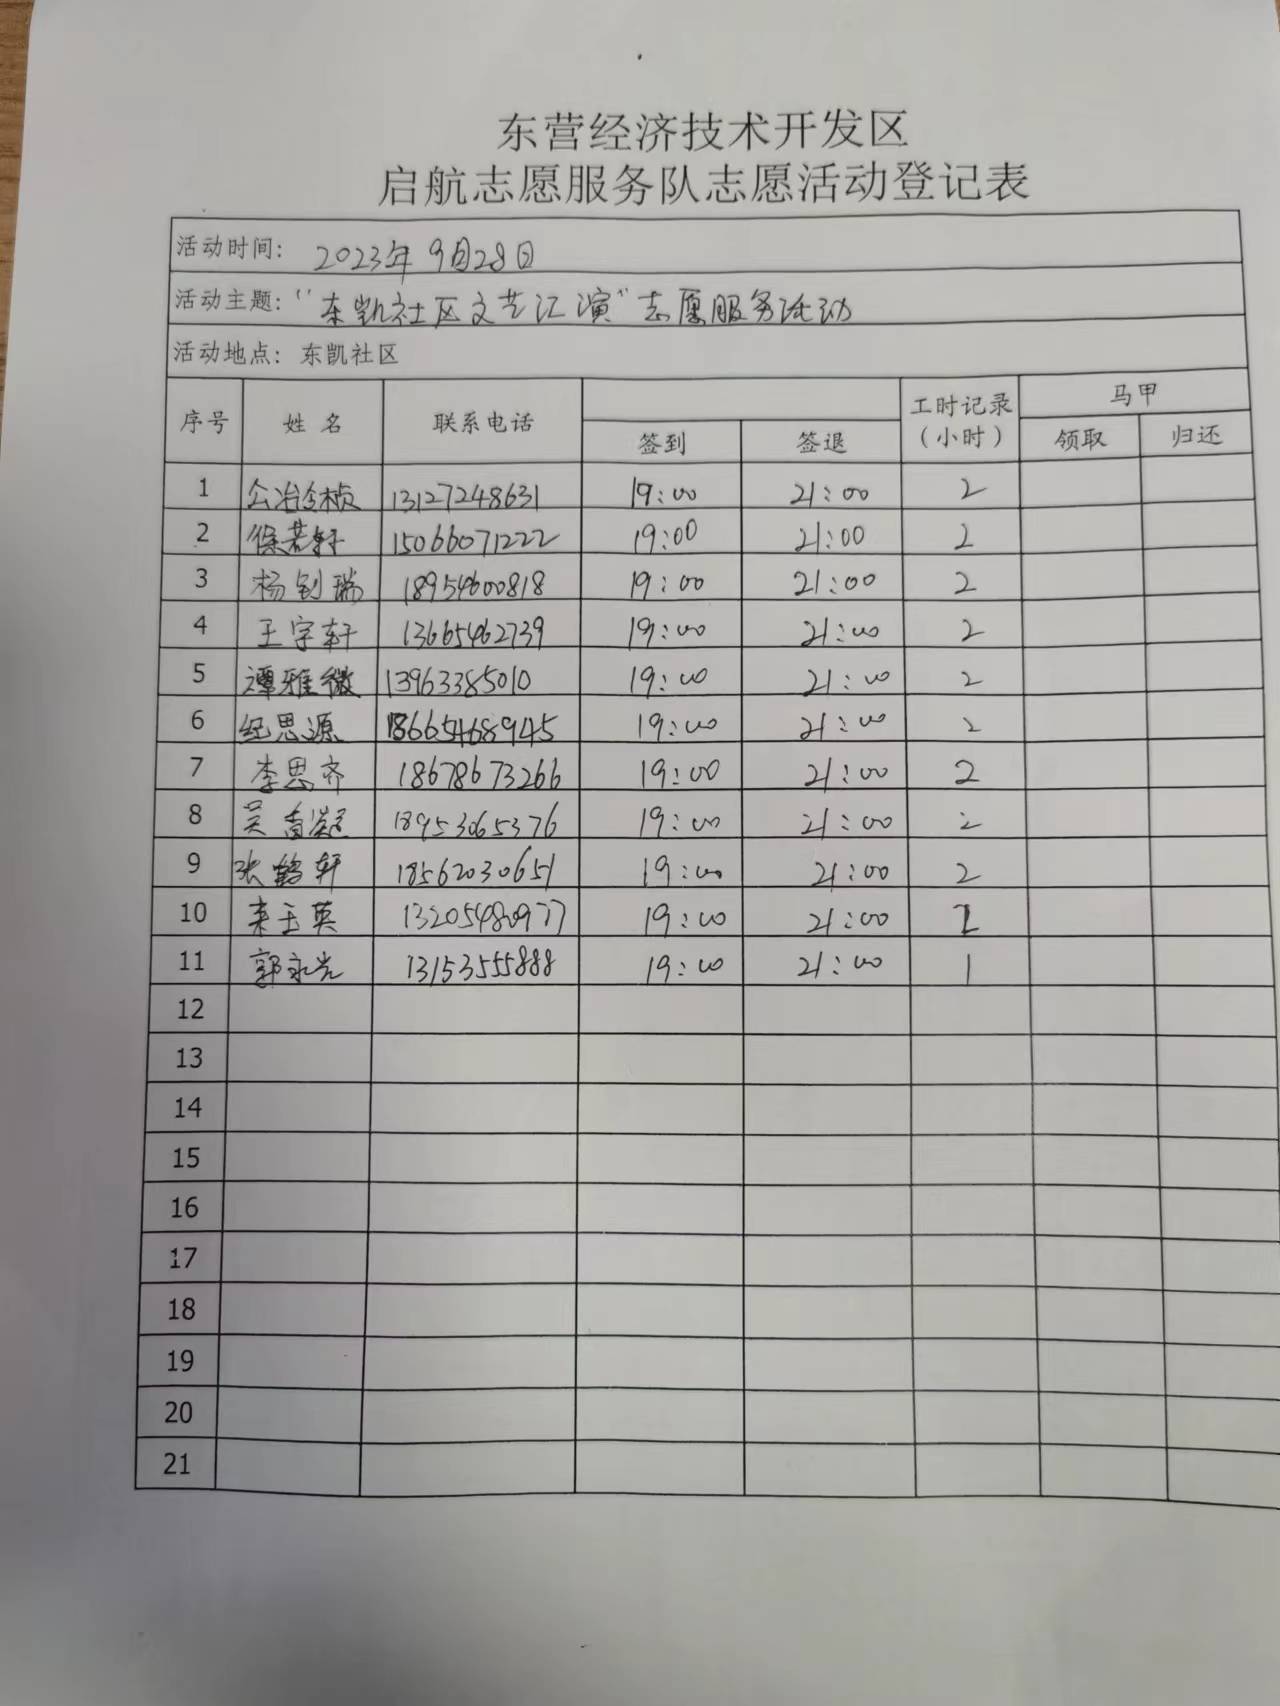 东营经济技术开发区
启航志愿服务队志愿活动登记表
活动时间: 2023年9月28日
活动主题:"东凯社区文艺汇演"志愿服务活动
活动地点: 东凯社区
序号 姓名 联系电话 签到 签退 工时记录(小时) 马甲 领取 归还
1 公冶令桢 13127248631 19:00 21:00 2
2 15066071222 19:00 21:00 2
3 杨钊瑞 18954600818 19:00 21:00 2
4 王宇轩 13665462739 19:00 21:00 2
5 谭雅微 13963385010 19:00 21:00 2
6 纪思源 18665468945 19:00 21:00 2
7 李思齐 18678673266 19:00 21:00 2
8 吴 18953065376 19:00 21:00 2
9 张鹤轩 18562030651 19:00 21:00 2
10 玉英 13205480977 19:00 21:00
11 郭永光 13153555888 19:00 21:00 1
12
13
14
15
16
17
18
19
20
21